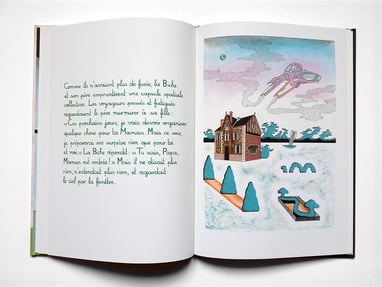 Comme ils n'avaient plus de fusée, la Biche
et son père empruntèrent une capsule spatiale
collective. Les voyageurs pressés et fatigués
regardaient le père murmurer à sa fille :
« Ces prochains jours, je vais devoir organiser
quelque chose pour la Maman. Mais ce soir,
je préparerai une surprise rien que pour toi
et moi. » La Biche répondit : « Tu sais, Papa,
Maman est rentrée ! » Mais il ne disait plus
rien, n'entendait plus rien, et regardait
le ciel par la fenêtre.